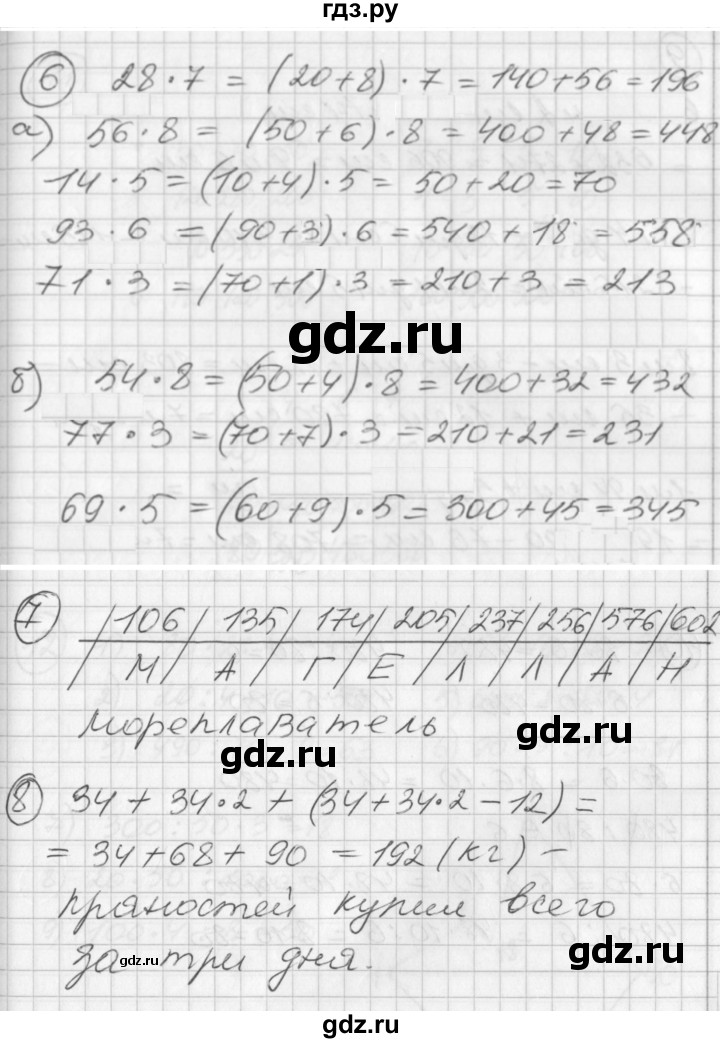 гдз.ру
6 28·7 = (20+8)·7 = 140+56 = 196
а) 56·8 = (50+6)·8 = 400+48 = 448
14·5 = (10+4)·5 = 50+20 = 70
93·6 = (90+3)·6 = 540+18 = 558
71·3 = (70+1)·3 = 210+3 = 213
gdz.ru
б) 54·8 = (50+4)·8 = 400+32 = 432
77·3 = (70+7)·3 = 210+21 = 231
69·5 = (60+9)·5 = 300+45 = 345
7 106 135 174 205 237 256 576 602
М А Г Е Л Л А Н
мореплаватель
gdz.ru gdz.ru
8 34 + 34·2 + (34+34·2-12) =
= 34+68+90 = 192 (кг) -
пряностей купил всего
за три дня.
gdz.ru
gdz.ru
gdz.ru